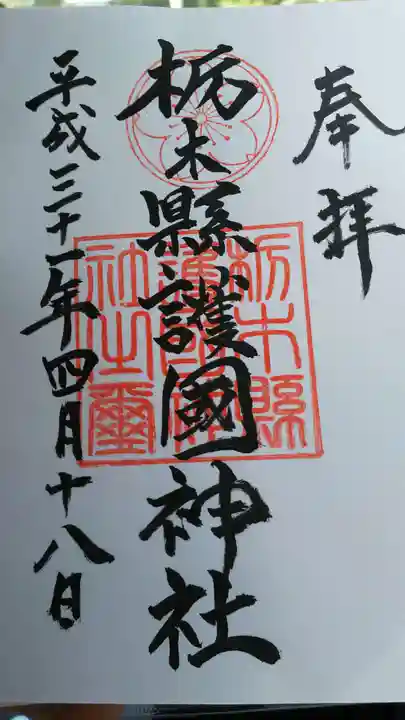 奉拝
栃木縣護國神社
栃木縣護國神社之璽
平成三十一年四月十八日